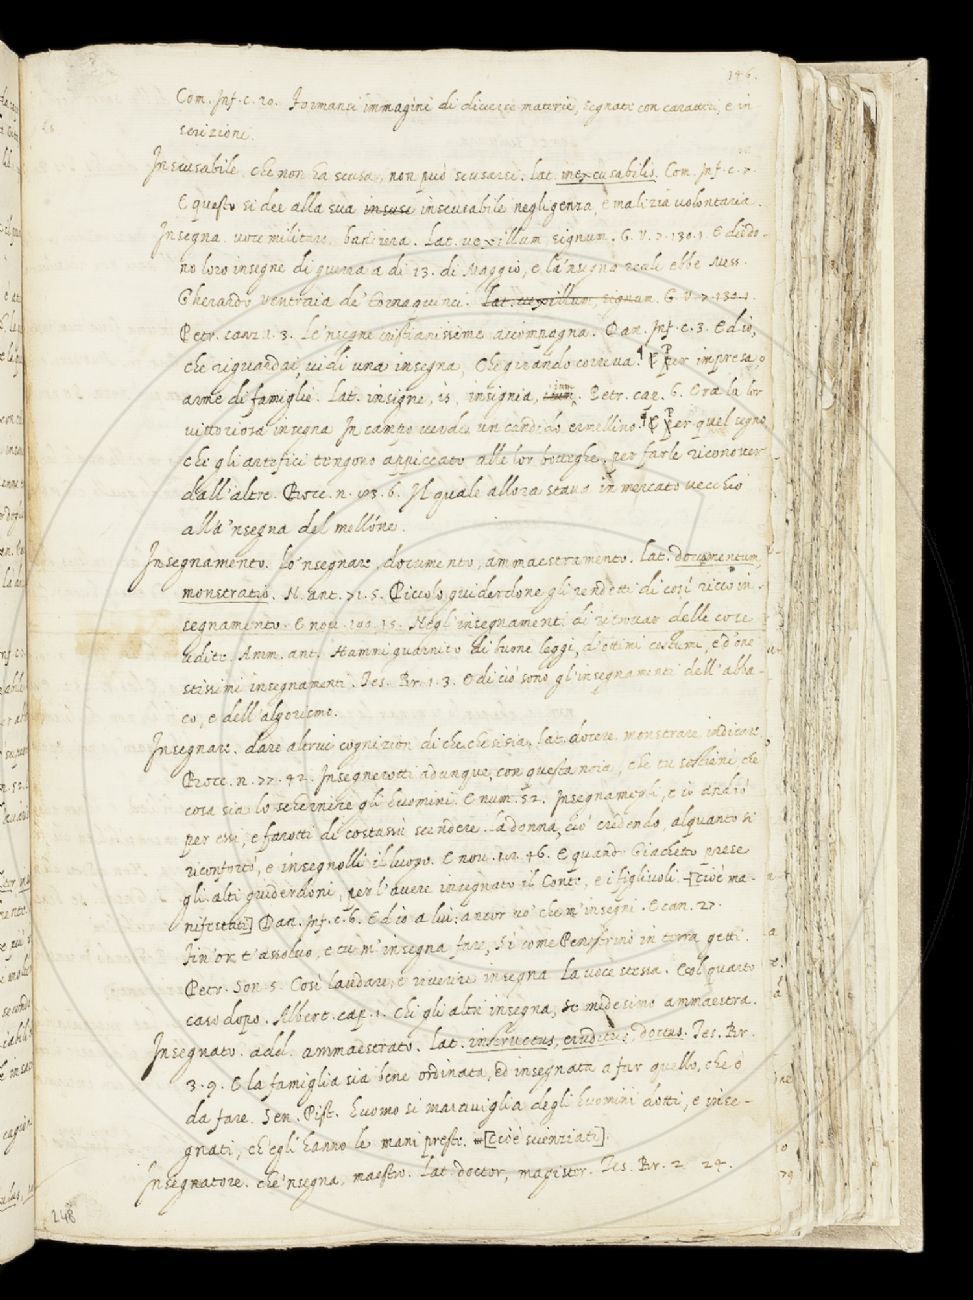 146.
Com. Inf. c. 20. Formansi immagini di diverse materie, segnate con caratteri, e in
scrizione.
Inscusabile. che non ha scusa, non può scusarsi. Lat. inexcusabilis. Com. Inf. c. 7.
E questo si dee alla sua inscusabile negligenza, e malizia volontaria.
Insegna. voce militare, bandiera. Lat. vexillum, signum. G. V. 7. 130. 1. E diedo-
no loro insegne di guerra a dì 13. di Maggio, e la 'nsegna reale ebbe Mess.
Gherardo Ventraia de' Tornaquinci. Lat. vexillum, signum. G. V. 7. 130. 1.
Petr. canz. 1. 3. Le 'nsegne cristianissime accompagna. Dan. Inf. c. 3. Ed io,
che riguardai, vidi una insegna, Che girando correva. ¶ Per impresa, o
arme di famiglie. Lat. insigne, is, insignia, ium. Petr. cap. 6. Era la lor
vittoriosa insegna In campo verde un candido ermellino. ¶ Per quel segno,
che gli artefici tengono appiccato alle lor botteghe, per farle riconoscer
dall'altre. Bocc. n. 73. 6. Il quale allora stava in mercato vecchio
alla 'nsegna del mellone.
Insegnamento. Lo 'nsegnare, documento, ammaestramento. Lat. documentum,
monstratio. N. ant. 71. 5. Piccolo guiderdone gli rendetti di così ricco in-
segnamento. E nov. 100. 15. Negl'insegnamenti di ritrovar delle cose
udite. Amm. ant. Hammi guarnito di buone leggi, d'ottimi costumi, e d'one
stissimi insegnamenti. Tes. Br. 1. 3. E di ciò sono gl'insegnamenti dell'abba-
co, e dell'algorismo.
Insegnare. dare altrui cognizion di che che si sia. Lat. docere, monstrare, indicare.
Bocc. n. 77. 42. Insegnerotti adunque, con questa noia, che tu sostieni, che
cosa sia lo schernire gli huomini. E num. 52. Insegnamegli, e io andrò
per essi, e farotti di costassù scendere. La donna, ciò credendo, alquanto si
riconfortò, e insegnolli il luogo. E nov. 46. E quando Giachetto prese
gli alti guiderdoni, per l'avere insegnato il Conte, e i figliuoli. [cioè ma-
nifestati] Dan. Inf. c. 6. Ed io a lui: ancor vo' che m'insegni. E can. 27.
Fin' or t'assolvo, e tu m'insegna fare, Sì come Penestrino in terra getti.
Petr. Son. 5. Così laudare, e riverire insegna La voce stessa. E gl. quarto
caso dopo. Albert. cap. 1. Chi gli altri insegna, se medesimo ammaestra.
Insegnato. add. ammaestrato. Lat. instructus, eruditus, doctus. Tes. Br.
3. 9. E la famiglia sia bene ordinata, ed insegnata a far quello, che è
da fare. Sen. Pist. Huomo si maraviglia degli huomini dotti, e inse-
gnati, ch'egli hanno le mani preste. [cioè scienziati]
Insegnatore. che 'nsegna, maestro. Lat. doctor, magister. Tes. Br. 2. 24.
248